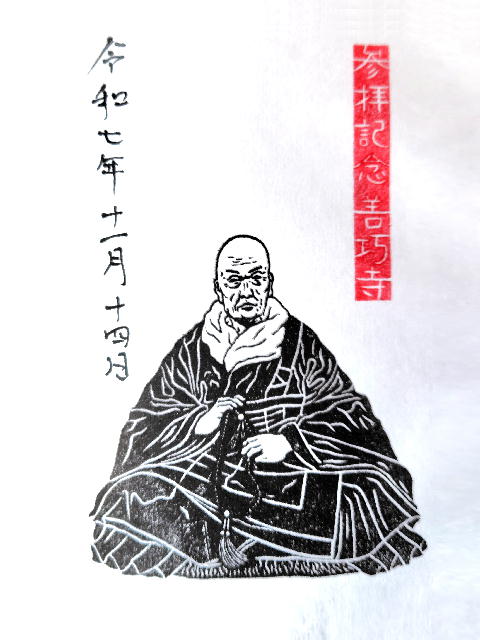 参拝記念善巧寺
令和七年十一月十四日